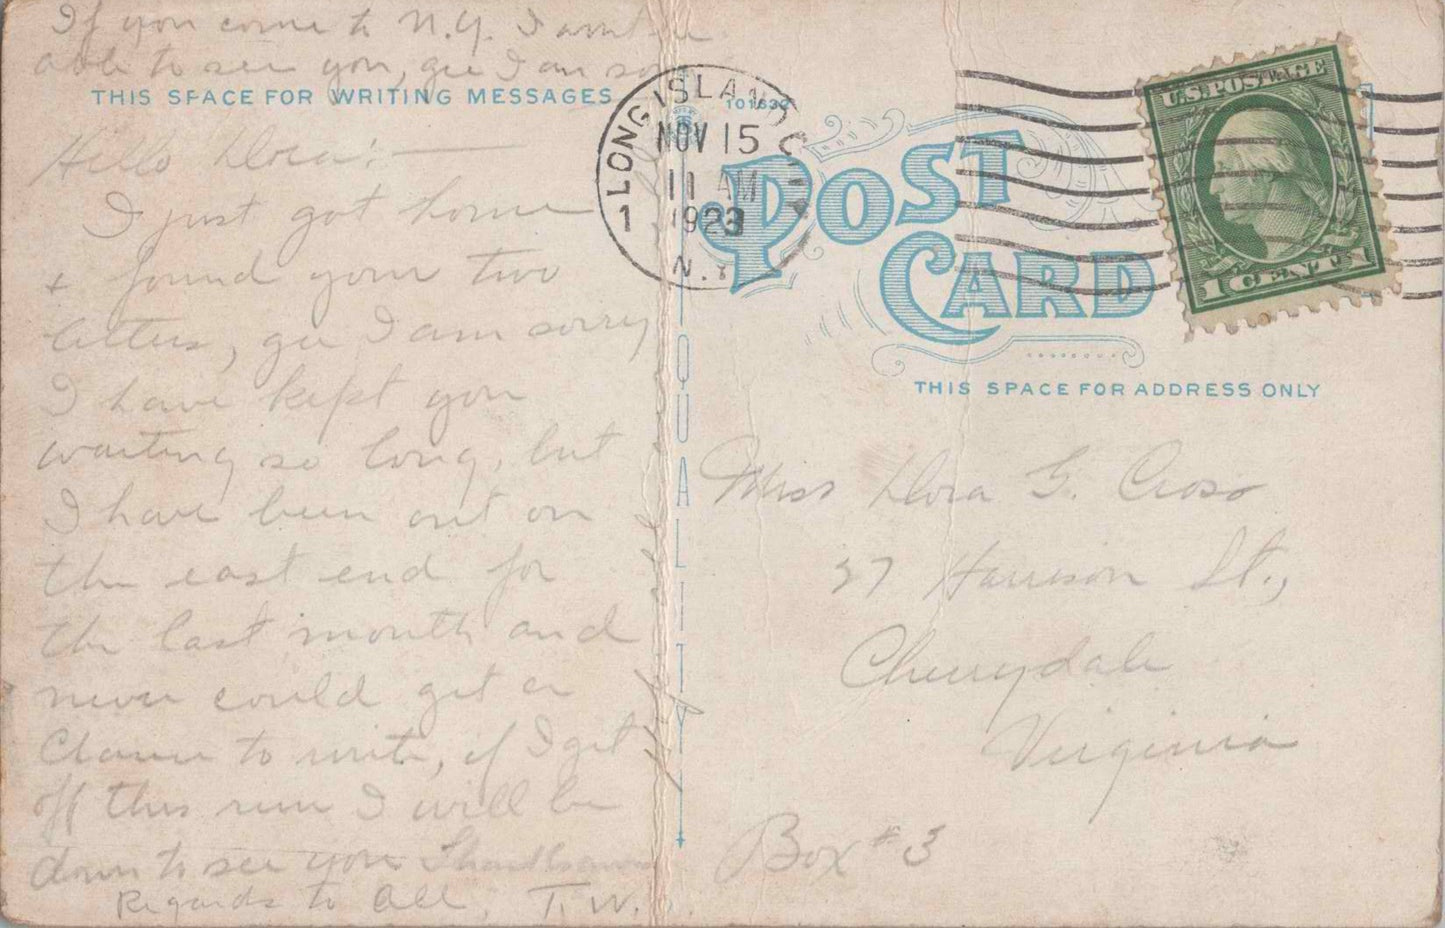 If you come to N.Y. I
able to see you, gee I am so
THIS SPACE FOR WRITING MESSAGES
Hello Dora:—
I just got home
+ found your two
letters, gee I am sorry
I have kept you
waiting so long, but
I have been out on
the east end for
the last month and
never could get a
Chance to write, if I get
off this run I will be
down to see you
Regards to All, T.W.
LONG ISLAND CITY
1
N.Y.
NOV 15
11 AM
1923
POST
CARD
U.S. POSTAGE
1 CENT 1
QUALITY
THIS SPACE FOR ADDRESS ONLY
Miss Dora G. Cross
37 Harrison St.,
Cherrydale
Virginia
Box #3